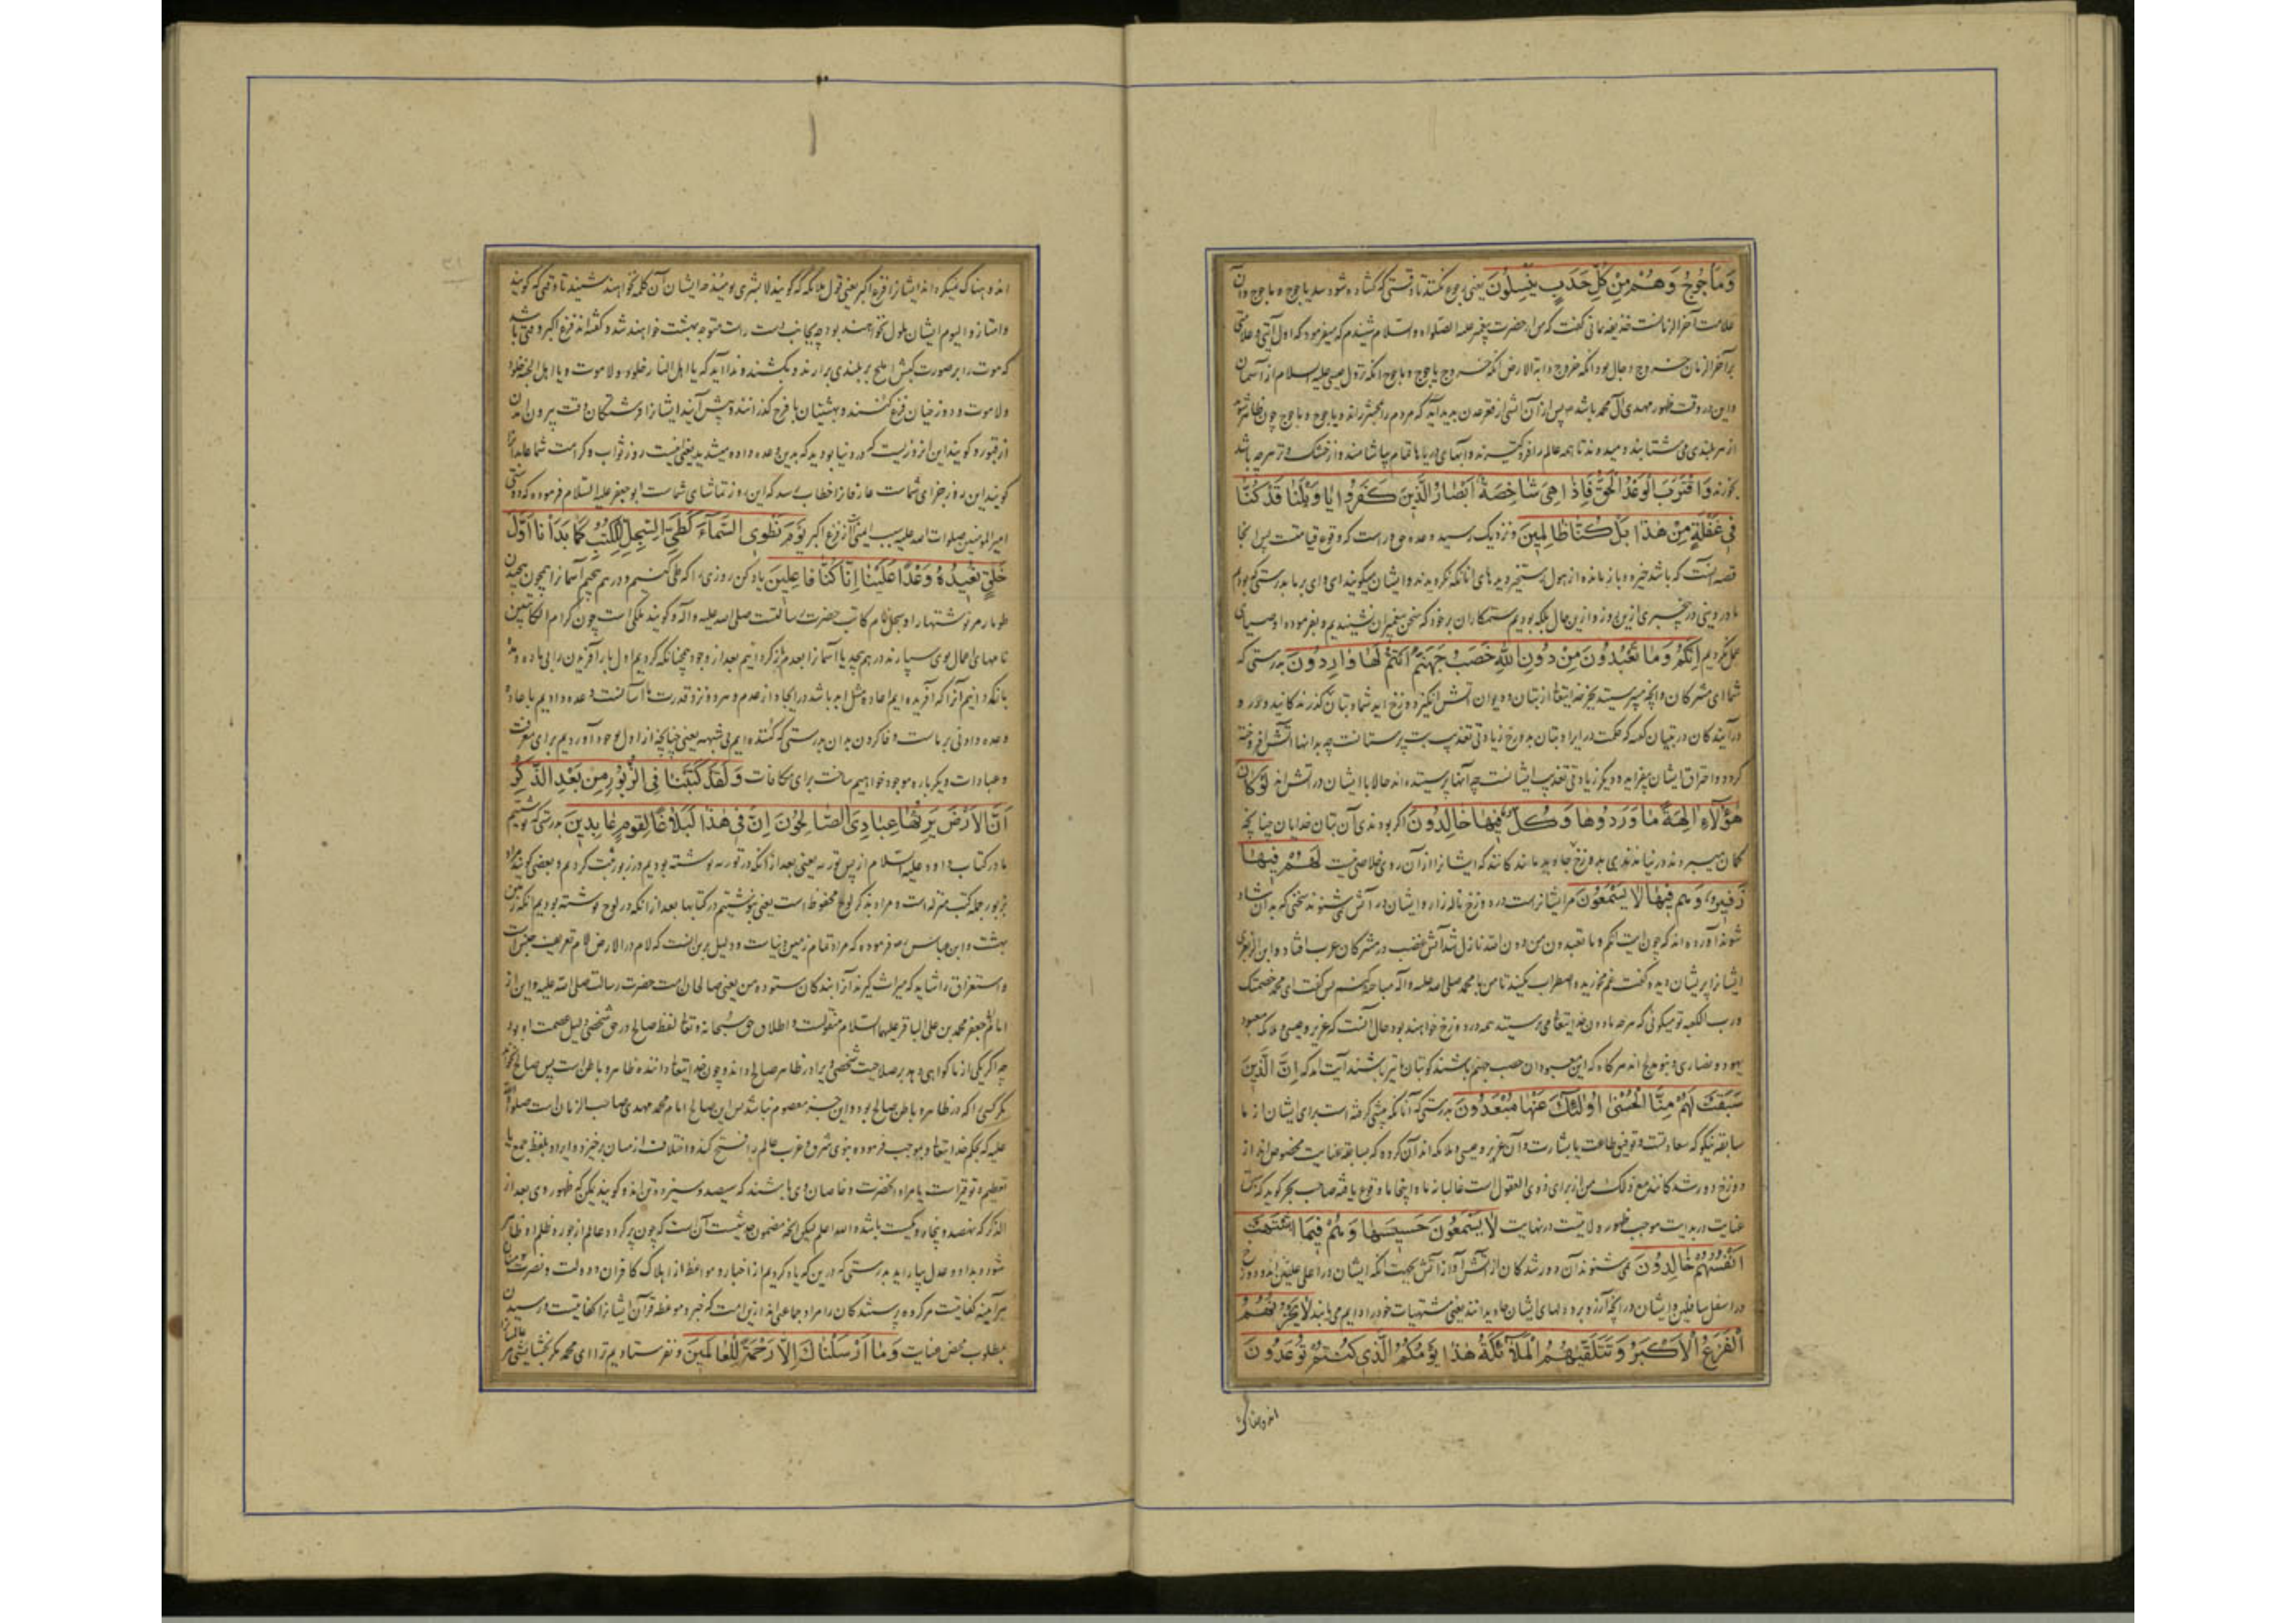 وَمَاْجُوجُ وَهُمْ مِنْ كُلِّ حَدَبٍ يَنْسِلُونَ یعنی رجوع نکنند تا وقتی که کشاده شود سد یاجوج و ماجوج و آن
علامت آخر الزمانست حذیفه یمانی گفت که من از حضرت پیغمبر علیه الصلواه والسلام شنیدم که میفرمود که اول آیتی و علامتی
بر آخر الزمان خروج دجال بود آنکه خروج دابة الارض آنکه خروج یاجوج و ماجوج آنکه نزول عیسی علیه السلام از آسمان
و این در وقت ظهور مهدی آل محمد باشد پس از آن آتشی از قعر عدن پدید آید که مردم را بمحشر راند و یاجوج و ماجوج چون ظاهر شوند
از هر بلندی می شتابند و میدوند تا همه عالم را فرو گیرند و آبهای دریاها تمام بیاشامند و از خشک و تر هر چه باشد
بخورند وَاقْتَرَبَ الْوَعْدُ الْحَقُّ فَاِذَا هِيَ شَاخِصَةٌ اَبْصَارُ الَّذِينَ كَفَرُوا يَا وَيْلَنَا قَدْ كُنَّا
فِي غَفْلَةٍ مِنْ هٰذَا بَلْ كُنَّا ظَالِمِينَ و نزدیک رسید وعده حق و راست که وقوع قیامتست پس آنجا
قصه اینست که باشد خیره و بازمانده از هول رستخیز دیدهای آنانکه نکرویدند و ایشان میگویند ای وای بر ما بدرستی که بودیم
ما در دینی در بیخبری ازین روز و ازین حال بلکه بودیم ستمکاران بر خود که سخن پیغمبران نشنیدیم و بفرموده اوصیای
عمل نکردیم اِنَّكُمْ وَمَا تَعْبُدُونَ مِنْ دُونِ اللّٰهِ حَصَبُ جَهَنَّمَ اَنْتُمْ لَهَا وَارِدُونَ بدرستی که
شما ای مشرکان و آنچه میپرستید بجز خدایتعالی از بتان و دیوان آتش انگیز دوزخ اید شما و بتان گذرندگانید و در و
درآیندگان در تبیان گفته که حکمت در ایراد بتان بدوزخ زیادتی تعذیب بت پرستانست چه بدانها آتش افروخته
گردد و احتراق ایشان بیفزاید و دیگر زیادتی تعذیب ایشانست چه آنها پرستیده اند حالا با ایشان در آتش اند لَوْ كَانَ
هٰؤُلَآءِ اٰلِهَةً مَا وَرَدُوهَا وَكُلٌّ فِيهَا خَالِدُونَ اگر بودندی آن بتان خدایان چنانچه
کمان میبرند در نیامدندی بدوزخ لَهُمْ فِيهَا
زَفِيرٌ وَهُمْ فِيهَا لَا يَسْمَعُونَ مر ایشانراست در دوزخ ناله زار و ایشان در آتش نمی شنوند سخنی که بدان شاد
شوند آورده اند که چون آیت انکم و ما تعبدون من دون الله نازل شد آتش غضب در مشرکان عرب افتاد و ابن الزبعری
ایشانرا پریشان دیده گفت غم مخورید و اضطراب مکنید تا من با محمد صلی الله علیه و آله مباحثه کنم پس گفت ای محمد خصمتک
ورب الکعبه تو میگوئی که هر چه مادون خدایتعالی می پرستند همه در دوزخ خواهند بود حال آنست که عزیر و عیسی و ملائکه معبود
یهود و نصاری و بنو ملیح اند هر گاه که این معبودان حصب جهنم باشند گو بتان ما نیز باشند آیت آمد که اِنَّ الَّذِينَ
سَبَقَتْ لَهُمْ مِنَّا الْحُسْنٰى اُولٰئِكَ عَنْهَا مُبْعَدُونَ بدرستی که آنانکه پیشی گرفته است برای ایشان از ما
سابقه نیکو که سعادتست و توفیق طاعت یا بشارت و آن عزیر و عیسی و ملائکه اند آن گروه که بسابقه عنایت مخصوص اند از
دوزخ دور شدگانند مع ذلک من از برای ذوی العقول است غالبا نه ما و اینجا ما وقوع یافته صاحب بحر گوید که سبق
عنایت در بدایت موجب ظهور ولایتست در نهایت لَا يَسْمَعُونَ حَسِيسَهَا وَهُمْ فِيمَا اشْتَهَتْ
اَنْفُسُهُمْ خَالِدُونَ نمی شنوند آن دور شدگان از آتش آواز آتش بجهت آنکه ایشان در اعلی علیین اند و دوزخ
در اسفل سافلین و ایشان در آنچه آرزو برد دلهای ایشان جاویدانند یعنی مشتهیات خود را دایم می یابند لَا يَحْزُنُهُمُ
الْفَزَعُ الْاَكْبَرُ وَتَتَلَقّٰيهُمُ الْمَلَآئِكَةُ هٰذَا يَوْمُكُمُ الَّذِي كُنْتُمْ تُوعَدُونَ
اندوهناک
اندوهناک نمیکرداند ایشانرا فزع اکبر یعنی قول ملائکه که گویند لا بشری یومئذ چه ایشان آن کلمه نخواهند شنیند تا وقتی که گویند
وامتازوا الیوم ایشان ملول نخواهند بود چه بجانب راست متوجه بهشت خواهند شد و گفته اند فزع اکبر وقتی باشد
که موت را بر صورت کبش املح بر بلندی برارند و بکشند و ندا آید که یا اهل النار خلود ولا موت و یا اهل الجنه خلود
ولا موت و دوزخیان فزع کنند و بهشتیان با فرح گذرانند و پیش آیند ایشانرا فرشتگان وقت بیرون آمدن
از قبور و گویند این آن روزیست که در دنیا بودید که بدین وعده داده میشدید یعنی اینست روز ثواب و کرامت شما عابدانرا
گویند این روز جزای شماست عارفانرا خطاب رسد که این روز تماشای شماست ابو جعفر علیه السلام فرموده که دوستی
امیرالمومنین صلوات الله علیه سبب ایمنی است از فزع اکبر يَوْمَ نَطْوِى السَّمَآءَ كَطَىِّ السِّجِلِّ لِلْكُتُبِ كَمَا بَدَأْنَا اَوَّلَ
خَلْقٍ نُعِيدُهُ وَعْدًا عَلَيْنَا اِنَّا كُنَّا فَاعِلِينَ یاد کن روزی را که طی کنیم و در هم پیچیم آسمانرا همچون پیچیدن
طومار مر نوشتهارا و سجل نام کاتب حضرت رسالتست صلی الله علیه و آله و گویند ملکی است چون کرام الکاتبین
نامهای اعمال بوی سپارند در هم پیچد یا آسمانرا بعدم باز گردانیم بعد از وجود همچنانکه کردیم اول بار آفریدن را بی ماده و مدد
بازگردانیم آنرا که آفریده ایم اعاده مثل ابدا باشد در ایجاد از عدم و هر دو نزد قدرت ما آسانست وعده دادیم باعاده
وعده دادنی بر ماست وفا کردن بدان بدرستی که کننده ایم بی شبهه یعنی چنانچه از اول بوجود آوردیم برای معرفت
و عبادات دیگر باره موجود خواهیم ساخت برای مکافات وَلَقَدْ كَتَبْنَا فِى الزَّبُورِ مِنْ بَعْدِ الذِّكْرِ
اَنَّ الْاَرْضَ يَرِثُهَا عِبَادِىَ الصَّالِحُونَ اِنَّ فِى هٰذَا لَبَلَاغًا لِقَوْمٍ عَابِدِينَ بدرستی که نوشتیم
ما در کتاب داود علیه السلام از پس توریه یعنی بعد از آنکه در توریه نوشته بودیم در زبور ثبت کردیم و بعضی گویند مراد
بزبور جمله کتب منزله است و مراد بذکر لوح محفوظ است یعنی بنوشتیم در کتابها بعد از آنکه در لوح نوشته بودیم آنکه زمین
بهشت و ابن عباس رض فرموده که مراد تمام زمین دنیاست و دلیل برین آنست که لام در الارض لام تعریف جنس است
و استغراق را شاید که میراث گیرند آنرا بندگان ستوده من یعنی صالحان امت حضرت رسالت صلی الله علیه و این از
امام جعفر محمد بن علی الباقر علیهما السلام منقولست و اطلاق حق سبحانه و تعالی لفظ صالح در حق شخصی دلیل عصمت او بود
چه اگر یکی از ما گواهی دهد بر صلاحیت شخصی ویرا در ظاهر صالح داند و چون خدایتعالی داننده ظاهر و باطن است پس صالح نخواند
مگر کسی را که در ظاهر و باطن صالح بود و این جز معصوم نباشد پس این صالح امام محمد مهدی صاحب الزمان است صلوات الله
علیه که بحکم خدایتعالی و بموجب فرموده نبوی شرق و غرب عالم را فتح کند و اختلاف از میان برخیزد و ایراد بلفظ جمع یا
تعظیم و توقیر است یا مراد آنحضرت و خاصان وی باشند که سیصد و سیزده تن اند و گویند یکن که ظهور وی بعد از
الذکر که نهصد و پنجاه و یکست باشد والله اعلم لیکن آنچه مضمون حدیثست آن است که چون پر گردد عالم از جور و ظلم او ظاهر
شود و بداد و عدل بیاراید بدرستی که درین که یاد کردیم از اخبار و مواعظ از اهلاک کافران و دولت و نصرت مومنان
هرآینه کفایتست مر گروه پرستندگان را مراد جماعتی اند ازین امت که خبر و موعظه قرآن ایشانرا کفایتست در رسیدن
بمطلوب محض عنایت وَمَا اَرْسَلْنَاكَ اِلَّا رَحْمَةً لِلْعَالَمِينَ و نفرستادیم ترا ای محمد مگر بخشایشی مر عالمیانرا